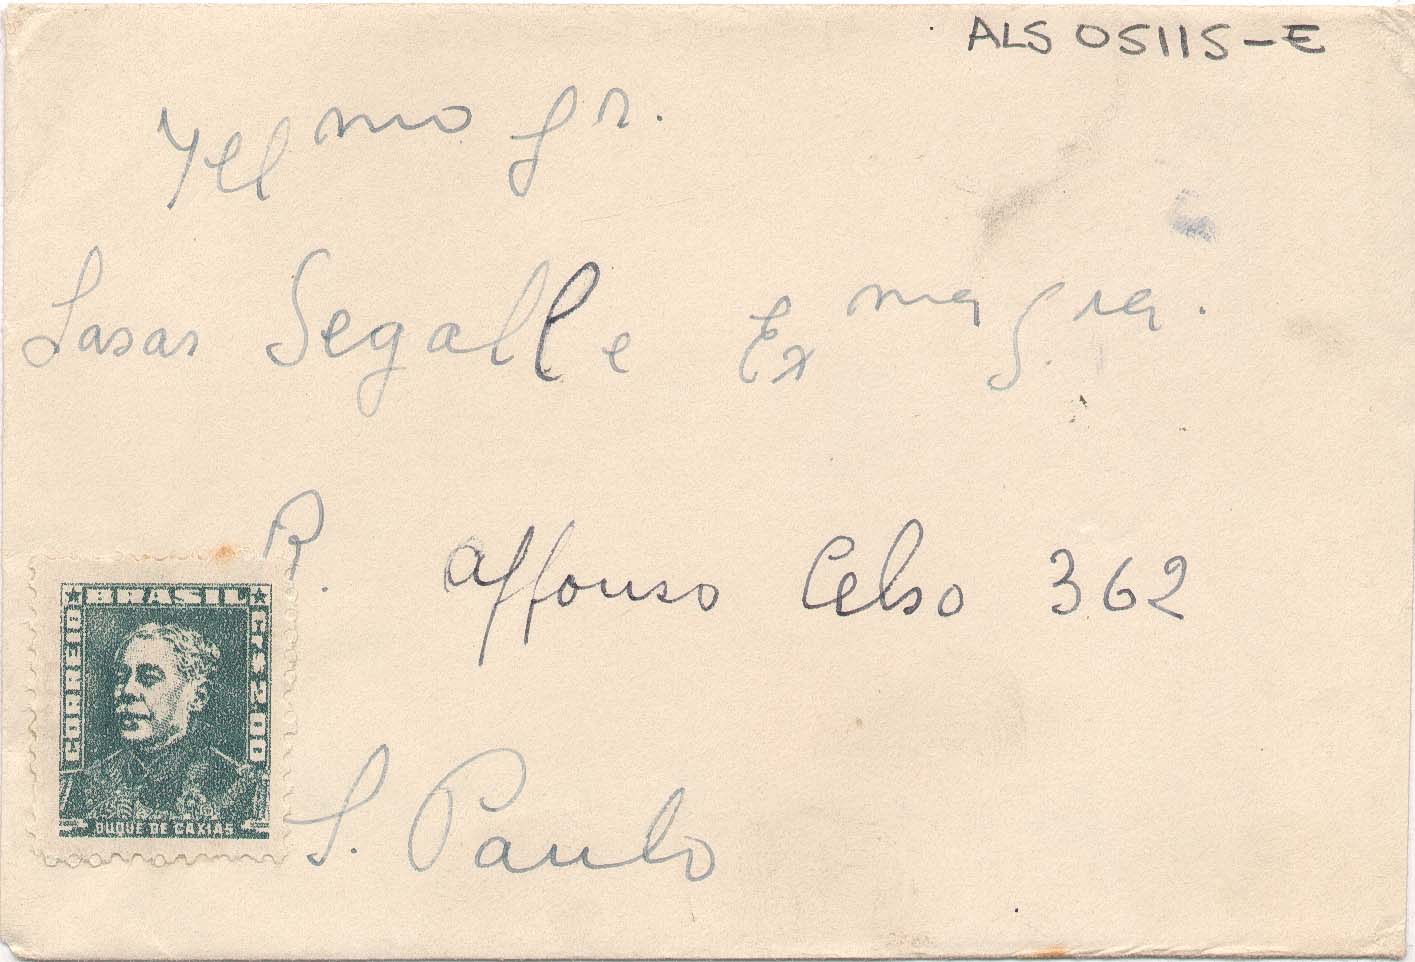 ALS 05115-E
Illmo Sr.
Lasar Segall e Exma Sra.
R. Affonso Celso 362
S. Paulo
BRASIL
CORREIO
Cr$ 2,00
DUQUE DE CAXIAS